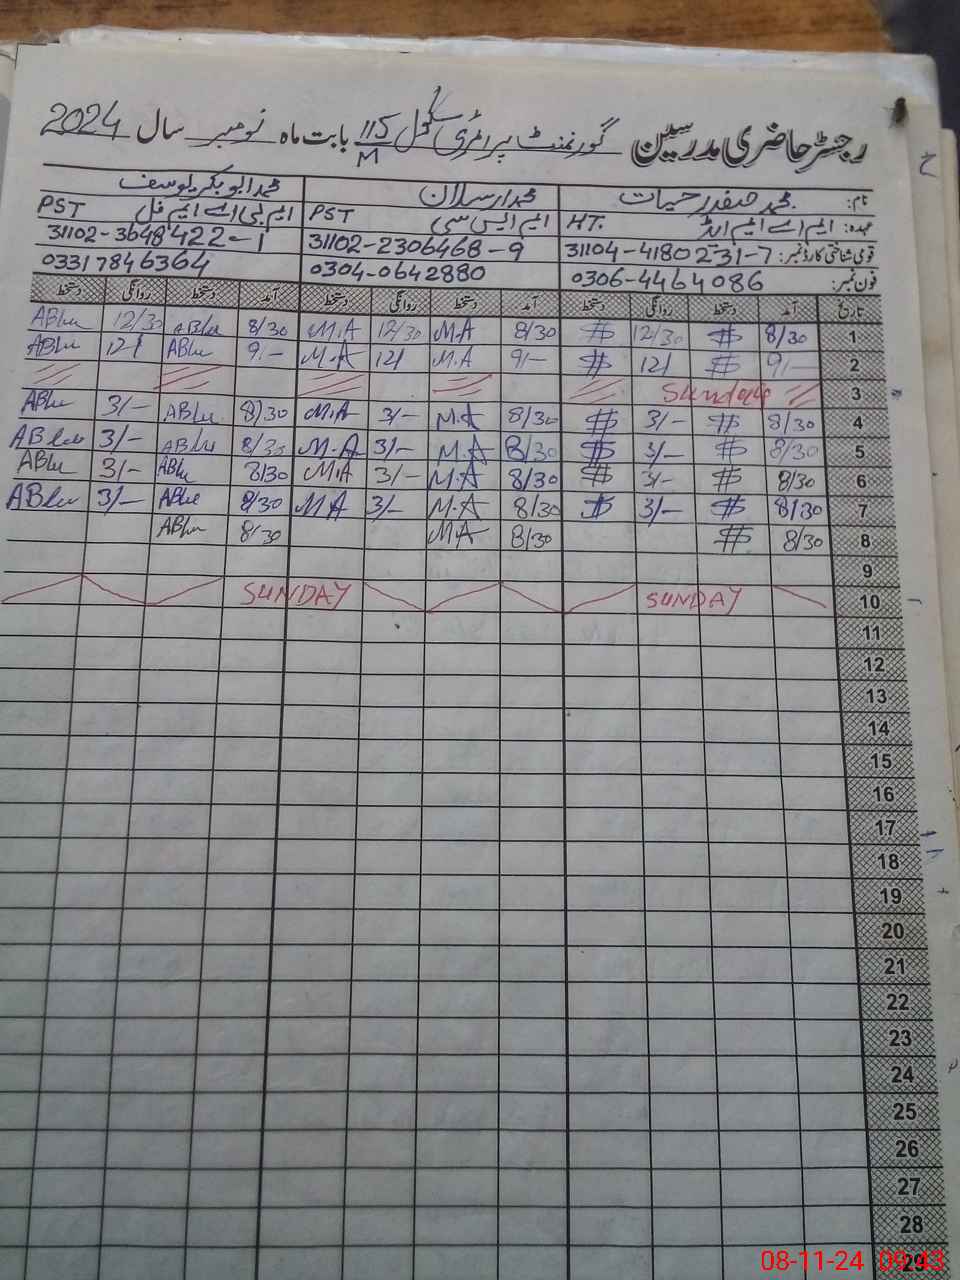 رجسٹر حاضری مدرسین گورنمنٹ پرائمری سکول 115/M بابت ماہ نومبر سال 2024
نام: محمد صفدر حیات محمد ارسلان محمد ابوبکر یوسف
عہدہ: ایم اے ایم ایڈ HT. ایم ایس سی PST ایم بی اے ایم فل PST
قومی شناختی کارڈ نمبر: 31104-4180231-7 31102-2306468-9 31102-3648422-1
فون نمبر: 0306-4464086 0304-0642880 03317846364
تاریخ آمد دستخط روانگی دستخط آمد دستخط روانگی دستخط آمد دستخط روانگی دستخط
1 8/30 12/30 8/30 M.A 12/30 M.A 8/30 ABlu 12/30 ABlu
2 9/- 12/ 9/- M.A 12/ M.A 9/- ABlu 12/ ABlu
3 Sunday
4 8/30 3/- 8/30 M.A 3/- M.A 8/30 ABlu 3/- ABlu
5 8/30 3/- 8/30 M.A 3/- M.A 8/30 ABlu 3/- ABlu
6 8/30 3/- 8/30 M.A 3/- M.A 8/30 ABlu 3/- ABlu
7 8/30 3/- 8/30 M.A 3/- MA 8/30 ABlu 3/- ABlu
8 8/30 8/30 MA 8/30 ABlu
9
10 SUNDAY SUNDAY
11
12
13
14
15
16
17
18
19
20
21
22
23
24
25
26
27
28
29
08-11-24 09:43